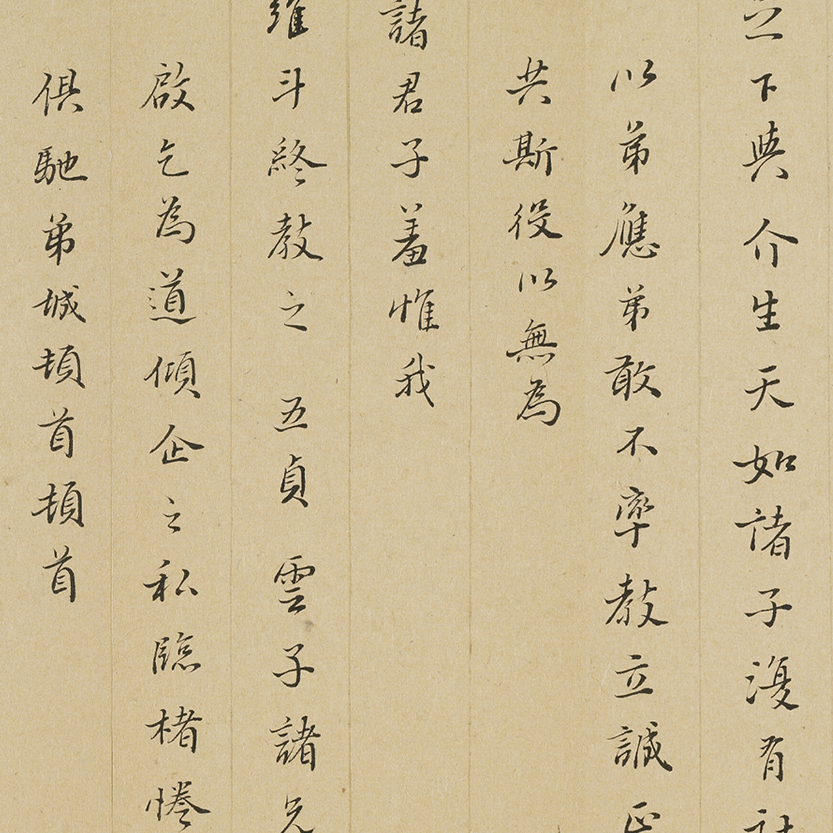 下與介生天如諸子漫有社
以弟應弟敢不率教立誠
共斯役以無為
諸君子羞惟我
維斗終教之 五貞 雲子諸兄
啟乞為道傾企之私臨楮惓
俱馳弟城頓首頓首